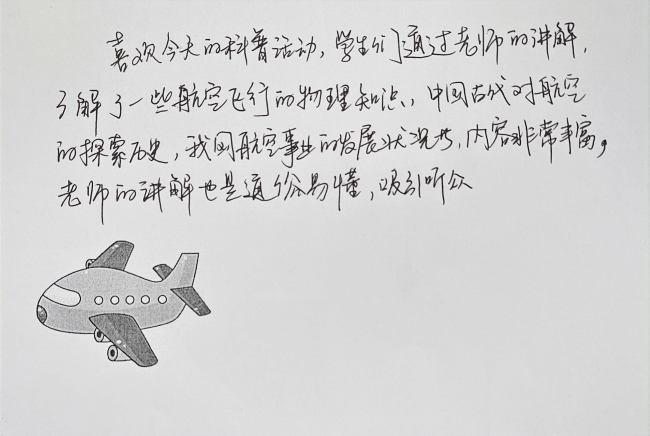 喜欢今天的科普活动，学生们通过老师的讲解，
了解了一些航空飞行的物理知识、中国古代对航空
的探索历史，我国航空事业的发展状况等，内容非常丰富，
老师的讲解也是通俗易懂，吸引听众